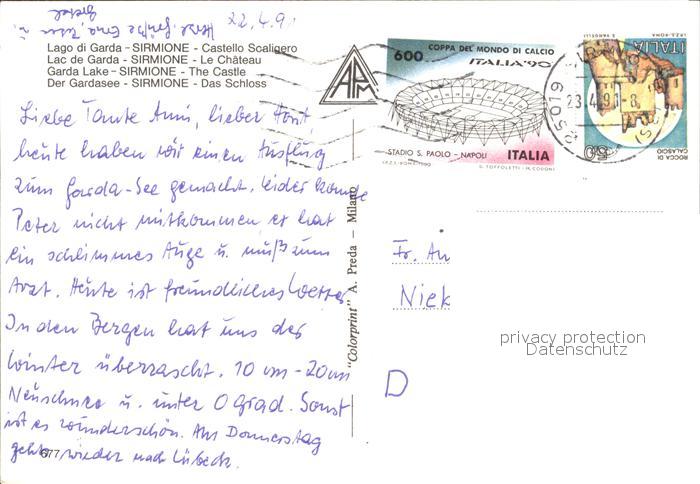 22.4.91
Herzl. Grüße Erna,
Lago di Garda – SIRMIONE - Castello Scaligero
Lac de Garda – SIRMIONE - Le Château
Garda Lake – SIRMIONE - The Castle
Der Gardasee - SIRMIONE - Das Schloss
APM
Liebe Tante Anni, lieber Horst,
heute haben wir einen Ausflug
zum Garda-See gemacht, leider konnte
Peter nicht mitkommen, er hat
ein schlimmes Auge u. muß zum
Arzt. Heute ist freundlicheres Wetter
In den Bergen hat uns der
Winter überrascht. 10 cm - 20 cm
Neuschnee u. unter 0 Grad. Sonst
ist es wunderschön. Am Donnerstag
geht's wieder nach Lübeck.
677
"Colorprint" A. Preda – Milano
600 COPPA DEL MONDO DI CALCIO
ITALIA '90
STADIO S. PAOLO - NAPOLI ITALIA
I.P.Z.S.-ROMA-1990 G. TOFFOLETTI - M. CODONI
ITALIA
I.P.Z.S.-ROMA
ROCCA DI CALASCIO
50
25019
23.4.91-8
Fr. An
Niek
D
privacy protection
Datenschutz